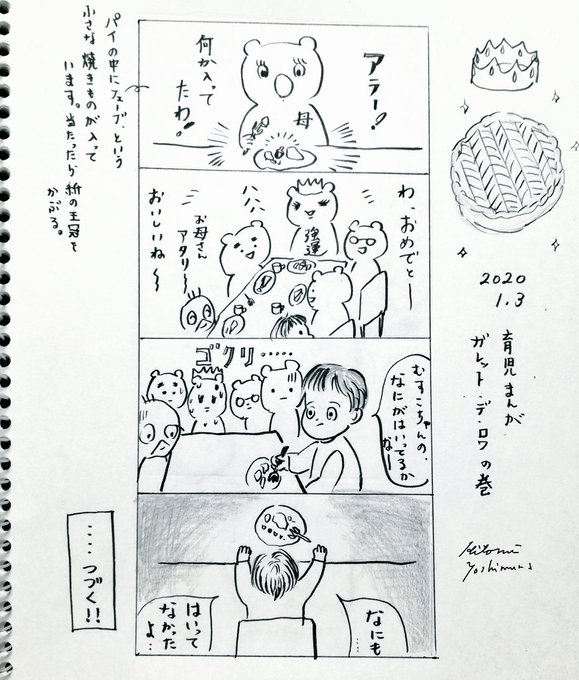 2020
1.3
育児まんが
ガレット・デ・ロワの巻
Hitomi
Yoshimura
アラー!
何か入って
たわ!
母
パイの中にフェーブ、という
小さな焼きものが入って
います。当たったら紙の王冠を
かぶる。
わ、おめでとー
強運
ハハハ
お母さん
アタリ〜
おいしいね〜
ゴクリ……
むすこちゃんの、
なにがはいってるか
なー
なにも
……
はいって
なかった
よ…
‥‥つづく!!